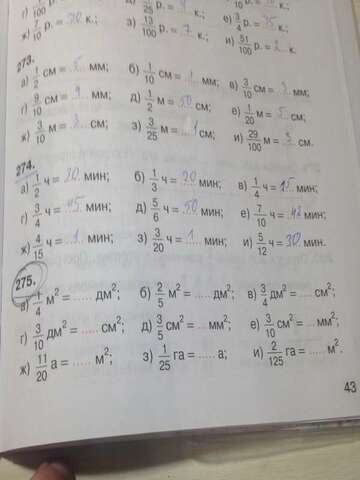 ж) 7/10 р. = 70 к.; з) 13/100 р. = 7 к.; и) 51/100 р. = 2 к.
273.
а) 1/2 см = 5 мм; б) 1/10 см = 1 мм; в) 3/10 см = 3 мм;
г) 9/10 см = 9 мм; д) 1/2 м = 50 см; е) 1/20 м = 5 см;
ж) 3/10 м = 3 см; з) 3/25 м = 1 см; и) 29/100 м = 3 см.
274.
а) 1/2 ч = 30 мин; б) 1/3 ч = 20 мин; в) 1/4 ч = 15 мин;
г) 3/4 ч = 45 мин; д) 5/6 ч = 50 мин; е) 7/10 ч = 42 мин;
ж) 4/15 ч = 1 мин; з) 3/20 ч = 1 мин; и) 5/12 ч = 30 мин.
275.
а) 1/4 м² = ..... дм²; б) 2/5 м² = ..... дм²; в) 3/4 дм² = .... см²;
г) 3/10 дм² = ..... см²; д) 3/5 см² = .... мм²; е) 3/10 см² = ... мм²;
ж) 11/20 а = ..... м²; з) 1/25 га = ..... а; и) 2/125 га = ..... м².
43